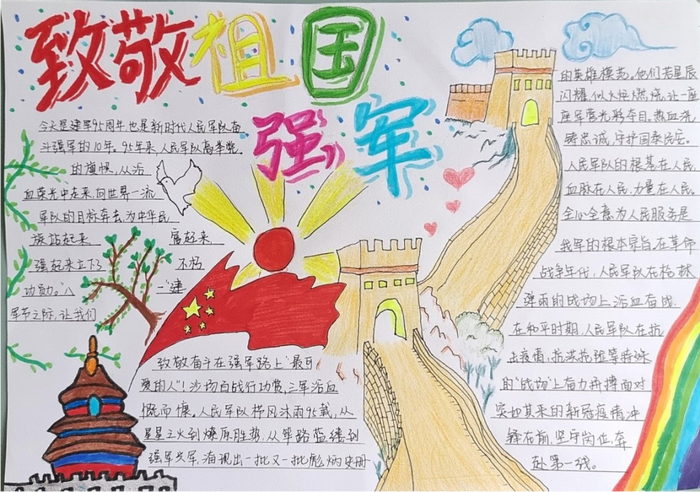 致敬祖国
强军
今天是建军95周年也是新时代人民军队奋
斗强军的10年。95年来，人民军队高举党
的旗帜，从浴
血荣光中走来，向世界一流
军队的目标奔去，为中华民
族站起来 富起来
强起来立下了 不朽
功勋。"八 一"建
军节之际，让我们
致敬奋斗在强军路上"最可
爱的人"！沙场百战行功赏，三军浴血
慨而慷，人民军队栉风沐雨95载，从
星星之火到燎原胜势，从筚路蓝缕到
强军兴军，涌现出一批又一批彪炳史册
的英雄模范。他们若星辰
闪耀，似火炬燃烧，让一座
座军营光彩夺目。热血浇
铸忠诚，守护国泰民安。
人民军队的根基在人民，
血脉在人民，力量在人民，
全心全意为人民服务是
我军的根本宗旨，在革命
战争年代，人民军队在枪林
弹雨的战场上浴血奋战，
在和平时期，人民军队在抗
击疫情、抗洪抗班等特殊
的"战场"上奋力拼搏，面对
突如其来的新冠疫情，冲
锋在前，坚守岗位，奔
赴第一线。